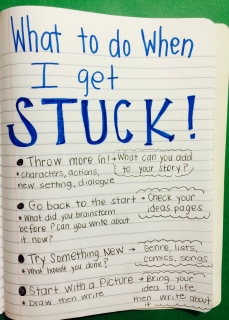 What to do When
I get
STUCK!
Throw more in! → What can you add
* characters, actions, to your story?
new setting, dialogue
Go back to the start → Check your
* What did you brainstorm ideas pages
before? can you write about
it now?
Try Something New → Genre, lists,
* What haven't you done? comics, songs
Start with a Picture → Bring your
* Draw then write idea to life
then write about
it